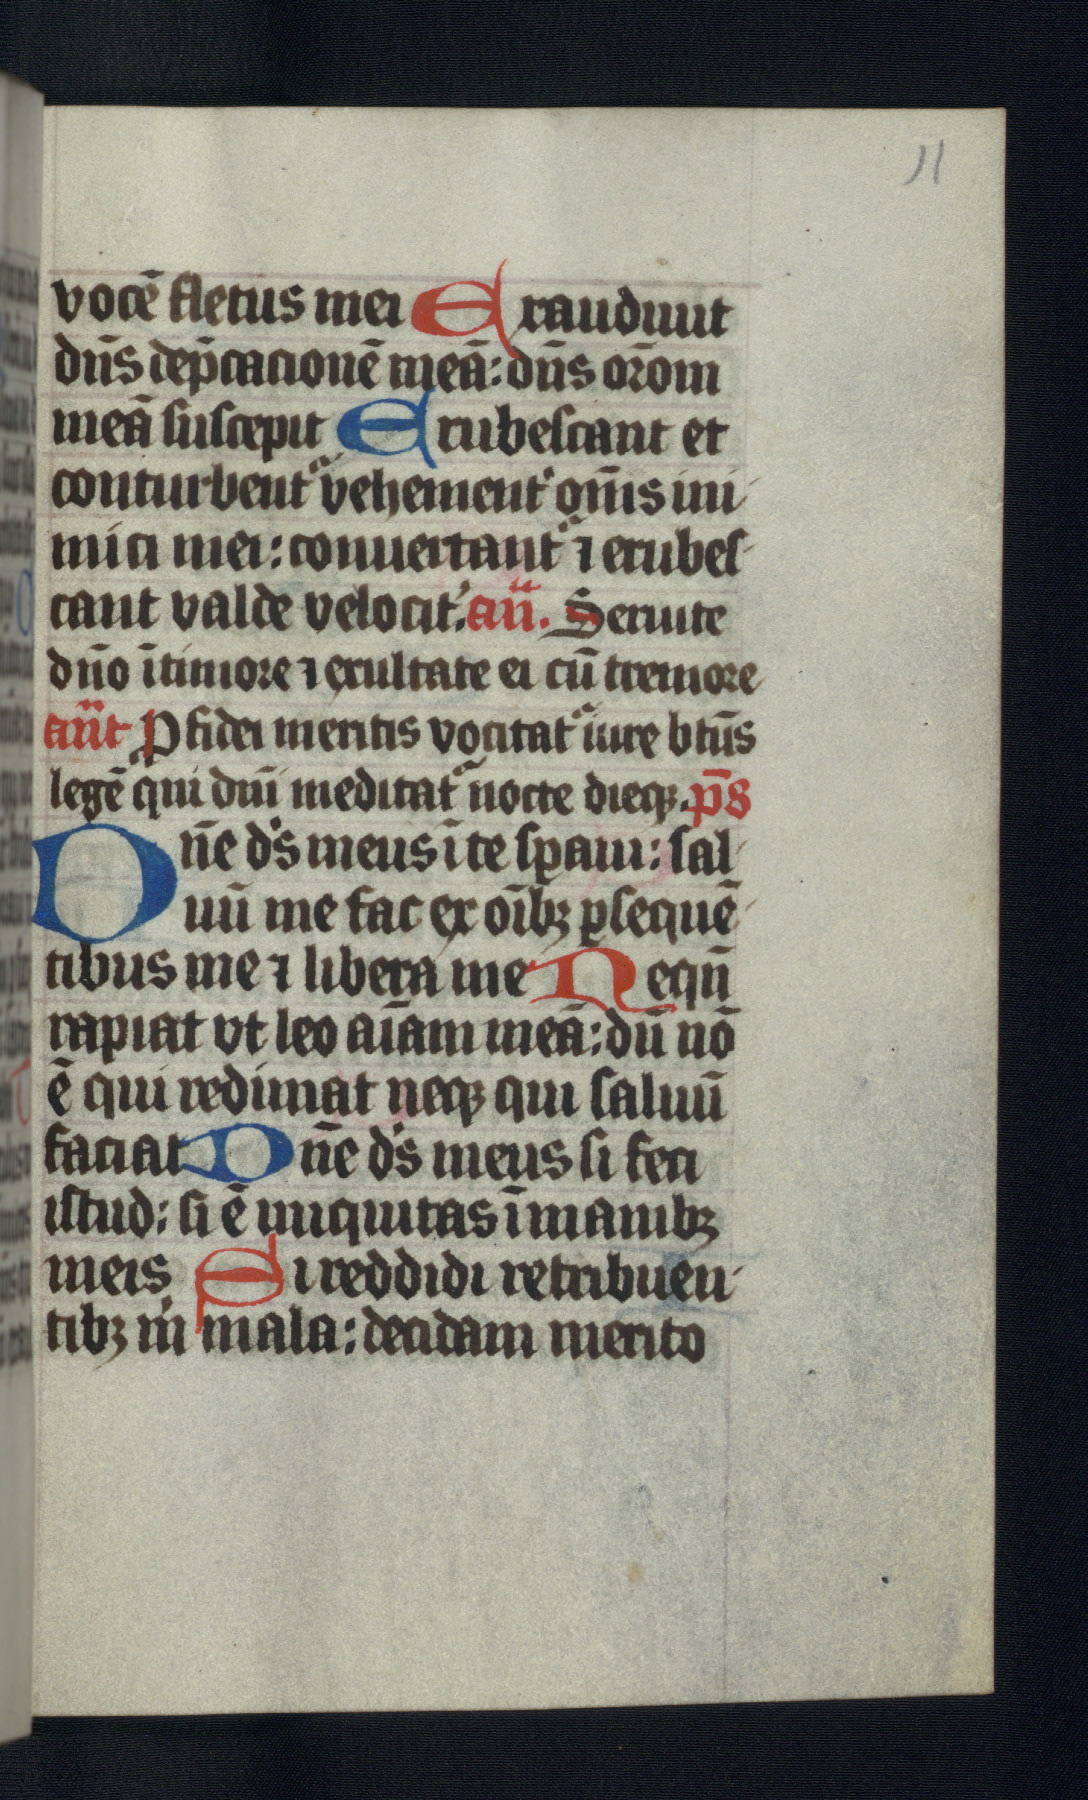 11
vocē fletus mei Exaudiuit
dn̄s dep̄cacionē meā: dn̄s or̄om
meā suscepit Erubescant et
conturbent᷑ vehement᷑ om̄s ini
mici mei: conuertant᷑ ⁊ erubes
cant valde velocit᷑. an̄. Seruite
dn̄o ī timore ⁊ exultate ei cū tremore
an̄t Ꝓ fidei meritis vocitat᷑ iure btūs
legē qui dn̄i meditat᷑ nocte dieqꝫ. p̄s
Dn̄e ds̄ meus ī te sꝑaui: sal
uū me fac ex oīb⁊ ꝑsequē
tibus me ⁊ libera me Nequn̄
rapiat vt leo aīam meā: dū nō
ē qui redimat neqꝫ qui saluū
faciat Dn̄e ds̄ meus si feci
istud: si ē iniquitas ī manibꝫ
meis Si reddidi retribuen
tibꝫ m̍ mala: decidam merito